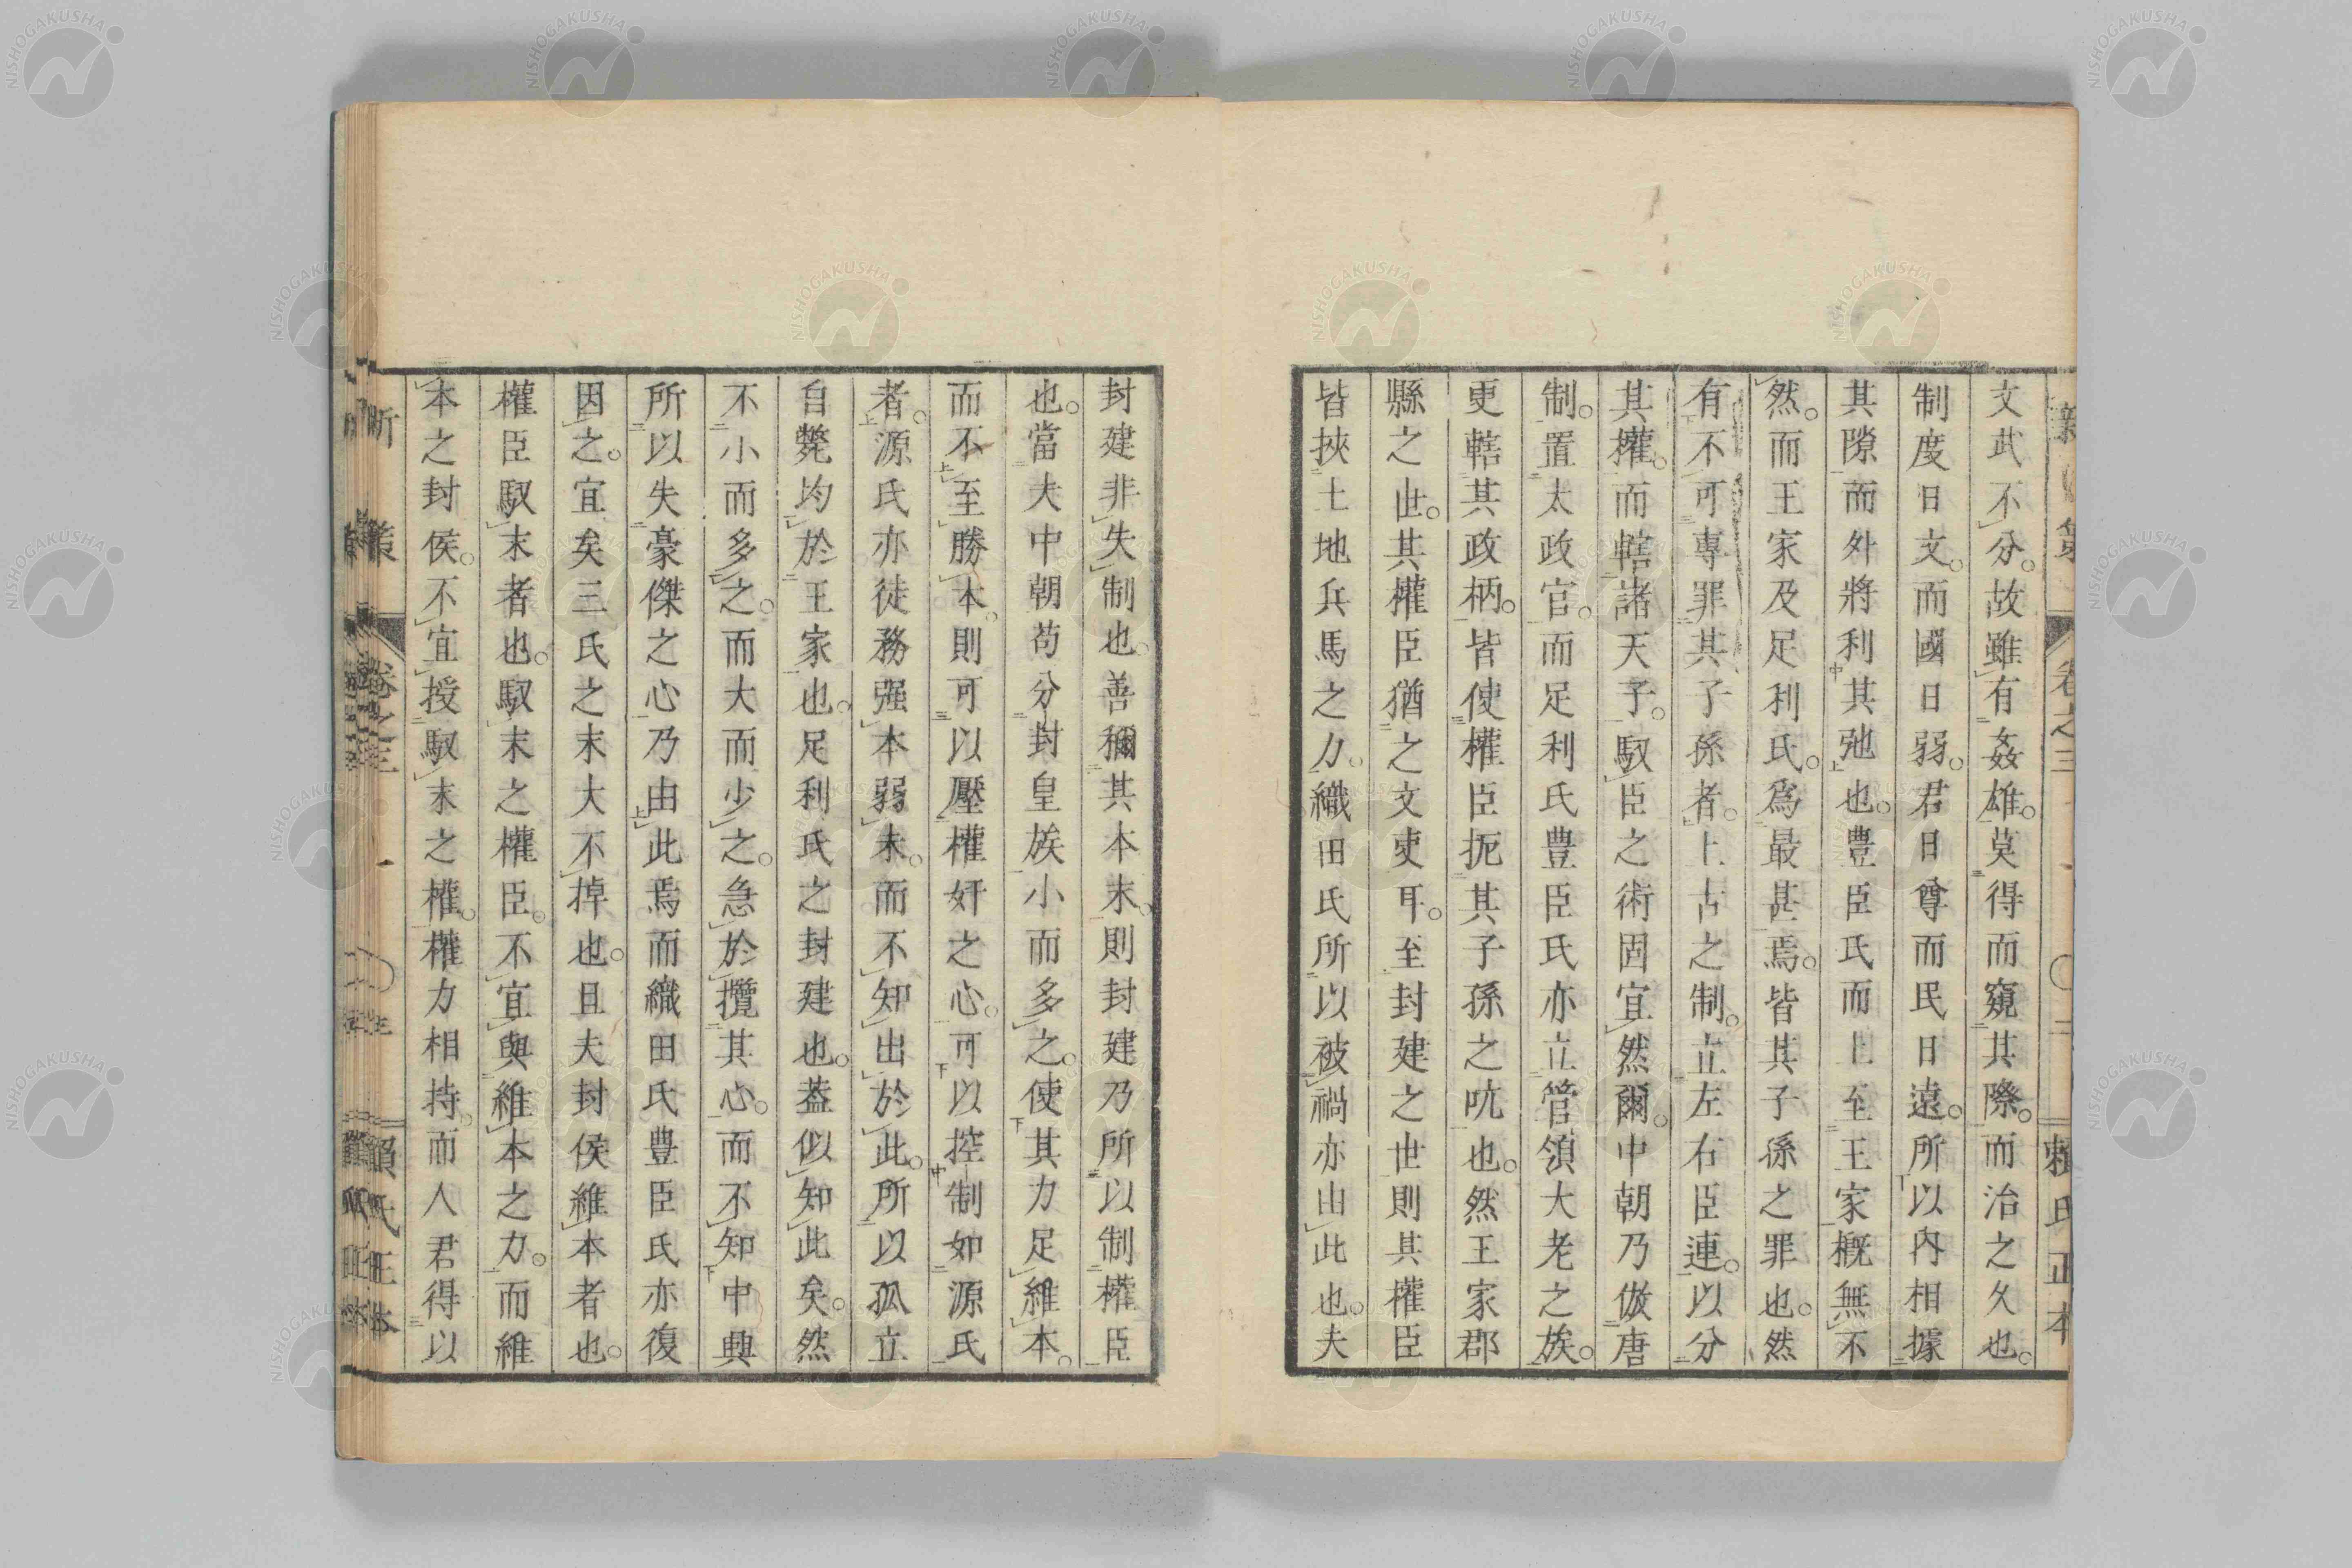 文武不分。故雖有姦雄。莫得而窺其際。而治之久也。
制度日文。而國日弱。君日尊而民日遠。所以内相據
其隙而外將利其弛也。豊臣氏而上至王家概無不
然。而王家及足利氏。爲最甚焉。皆其子孫之罪也。然
有不可專罪其子孫者。上古之制。立左右臣連。以分
其權。而轄諸天子。馭臣之術固宜然爾。中朝乃倣唐
制。置太政官。而足利氏豊臣氏亦立管領大老之族。
更轄其政柄。皆使權臣扼其子孫之吭也。然王家郡
縣之世。其權臣猶之文吏耳。至封建之世則其權臣
皆挾土地兵馬之力。織田氏所以被禍亦由此也。夫
封建非失制也。善稱其本末。則封建乃所以制權臣
也。當夫中朝苟分封皇族小而多之。使其力足維本。
而不至勝本。則可以壓權奸之心。可以控制如源氏
者。源氏亦徒務强本弱末。而不知出於此。所以孤立
自斃均於王家也。足利氏之封建也。葢似知此矣。然
不小而多之。而大而少之。急於攬其心。而不知中興
所以失豪傑之心乃由此焉而織田氏豊臣氏亦復
因之。宜矣三氏之末大不掉也。且夫封侯維本者也。
權臣馭末者也。馭末之權臣。不宜與維本之力。而維
本之封侯。不宜授馭末之權。權力相持。而人君得以
卷之三
賴氏正本
NISHOGAKUSHA